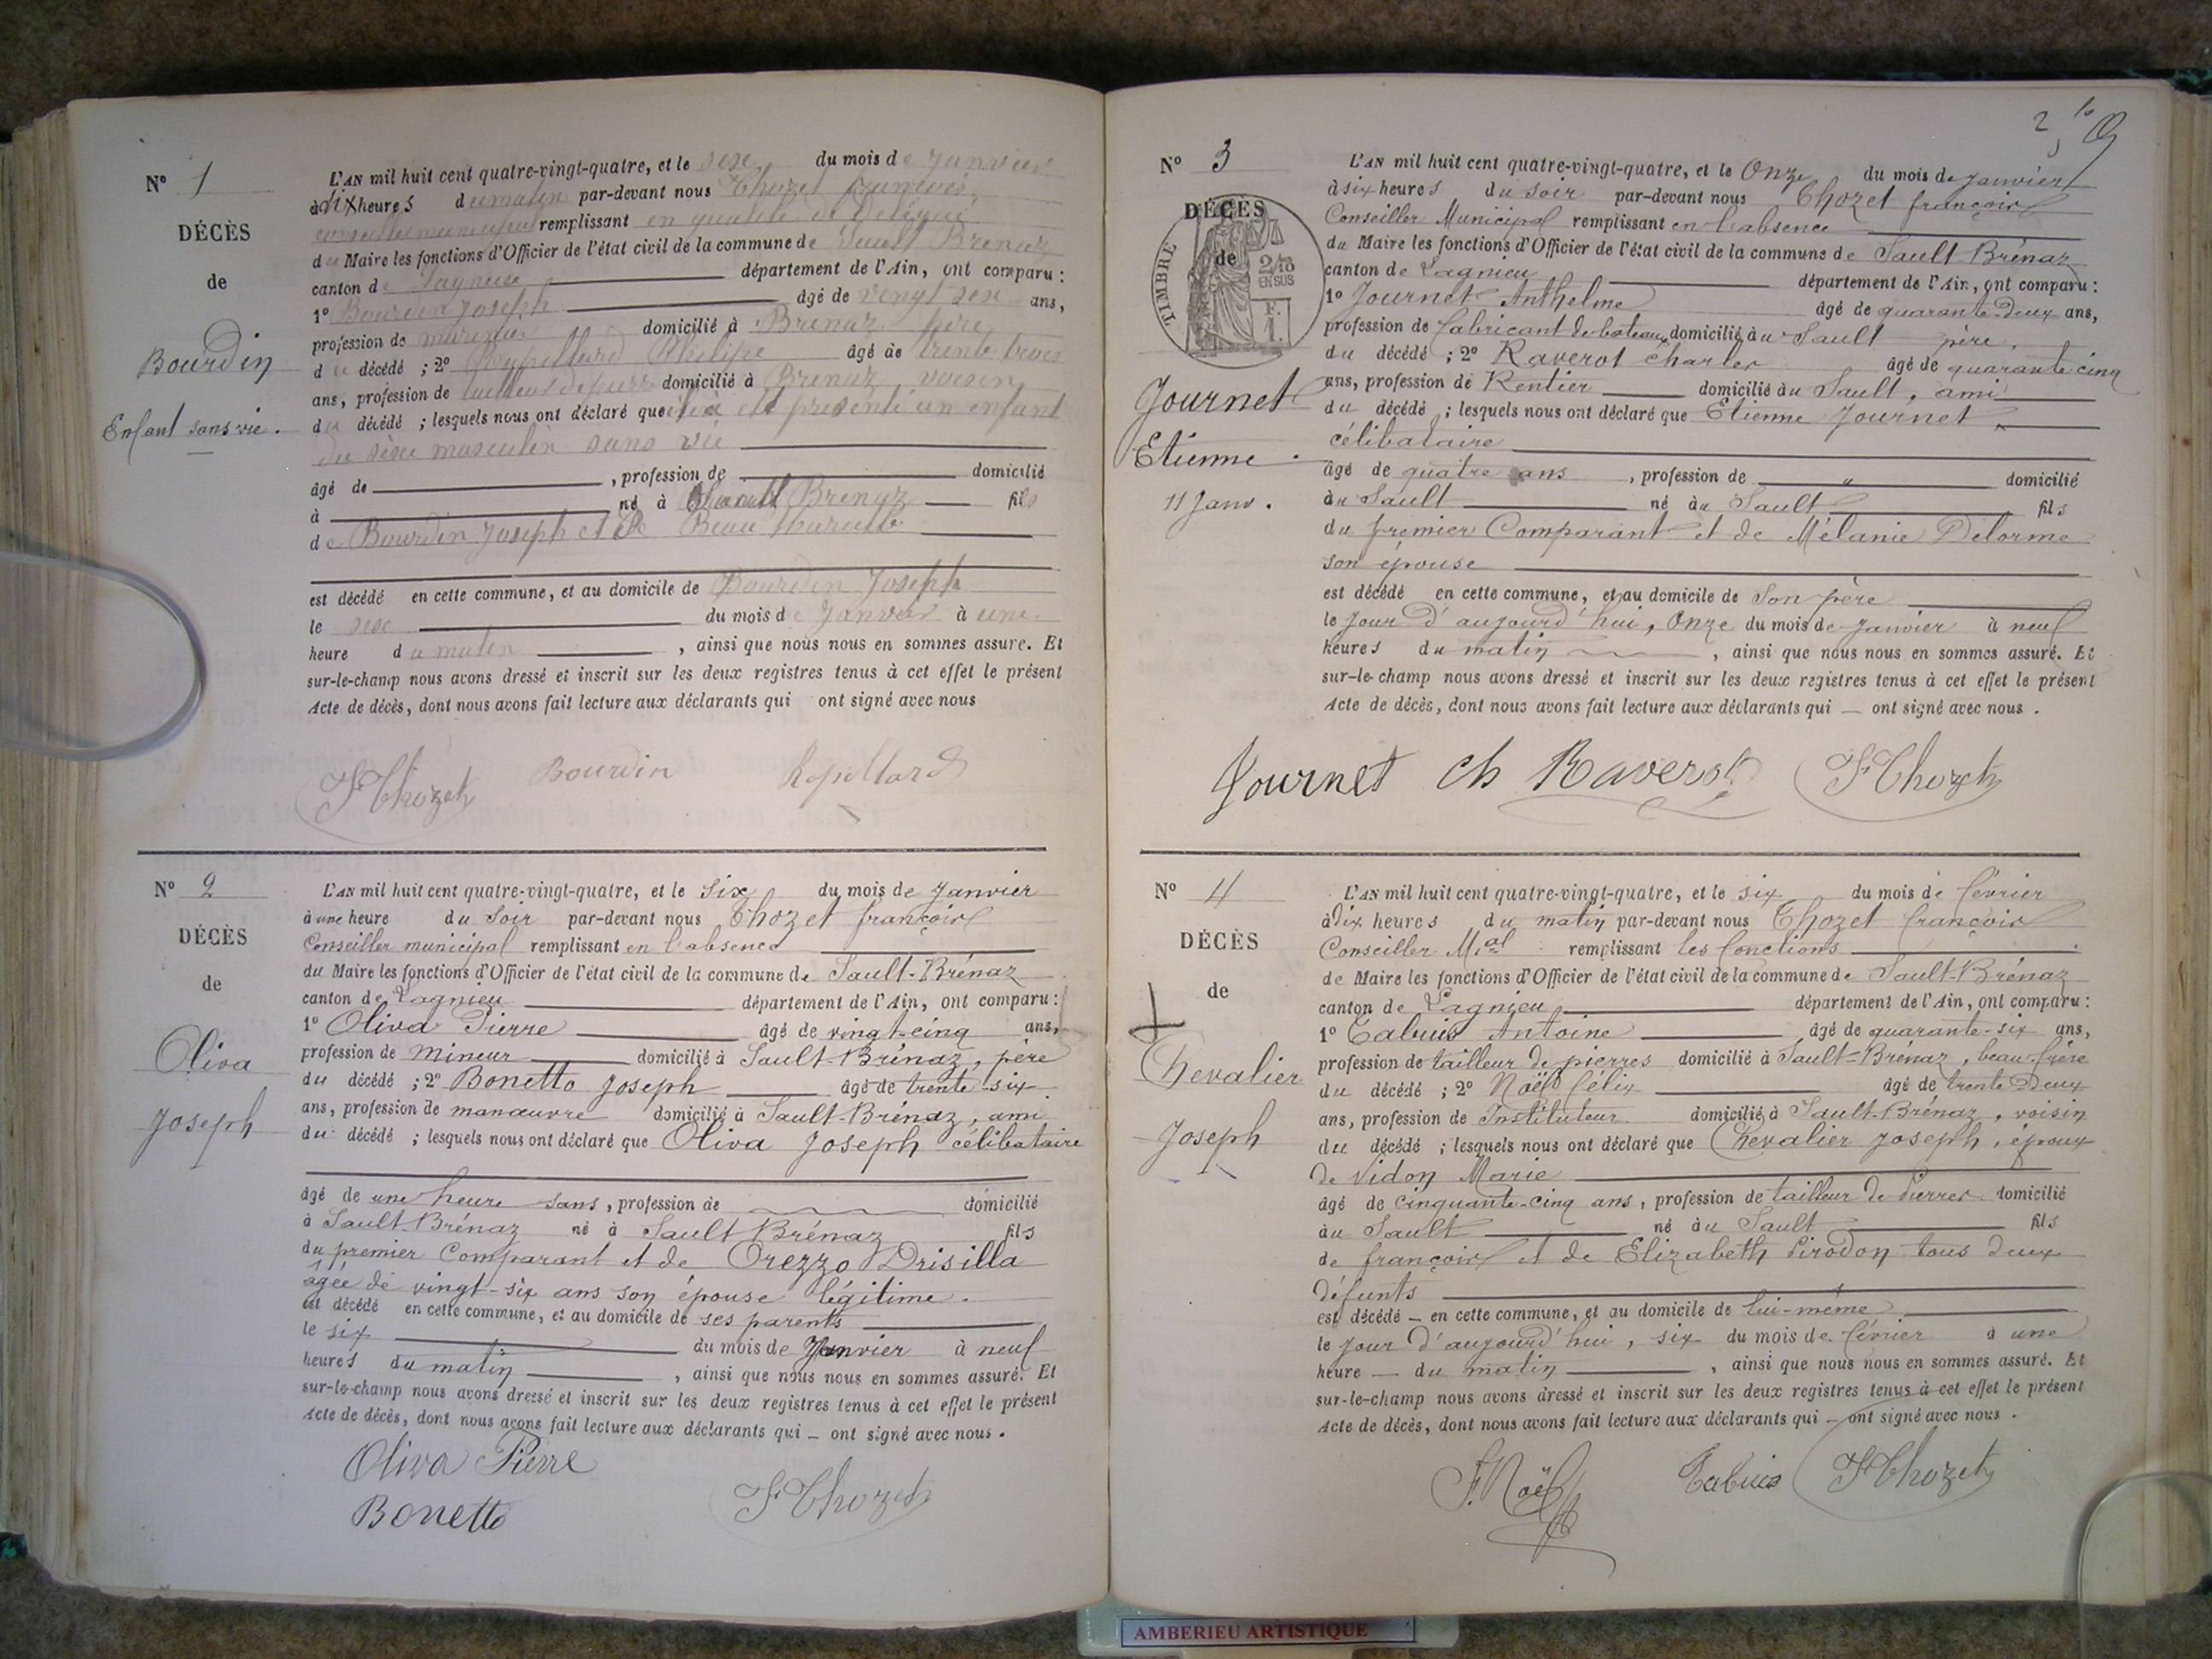 N° 1
DÉCÈS
de
Bourdin
Enfant sans vie.
L'AN mil huit cent quatre-vingt-quatre, et le sixe du mois de Janvier
à dix heures du matin par-devant nous Thozet francois
conseiller municipal remplissant en qualité de Délégué
du Maire les fonctions d'Officier de l'état civil de la commune de Sault Brenaz
canton de Lagnieu département de l'Ain, ont comparu :
1° Bourdin Joseph âgé de vingt sixe ans,
profession de mineur domicilié à Brenaz père
du décédé ; 2° Philipe âgé de trente trois
ans, profession de tailleur de pierre domicilié à Brenaz voisin
du décédé ; lesquels nous ont déclaré que présenté un enfant
du sexe masculin sans vie
âgé de , profession de domicilié
à né à Sault Brenaz fils
de Bourdin Joseph et de Beau
est décédé en cette commune, et au domicile de Bourdin Joseph
le sixe du mois de Janvier à une
heure du matin , ainsi que nous nous en sommes assuré. Et
sur-le-champ nous avons dressé et inscrit sur les deux registres tenus à cet effet le présent
Acte de décès, dont nous avons fait lecture aux déclarants qui ont signé avec nous
F. Thozet Bourdin Repollard
N° 2
DÉCÈS
de
Oliva
Joseph
L'AN mil huit cent quatre-vingt-quatre, et le six du mois de Janvier
à une heure du soir par-devant nous Thozet françois
Conseiller municipal remplissant en l'absence
du Maire les fonctions d'Officier de l'état civil de la commune de Sault-Brénaz
canton de Lagnieu département de l'Ain, ont comparu :
1° Oliva Pierre âgé de vingt-cinq ans,
profession de mineur domicilié à Sault-Brénaz, père
du décédé ; 2° Bonetto Joseph âgé de trente-six
ans, profession de manœuvre domicilié à Sault-Brénaz, ami
du décédé ; lesquels nous ont déclaré que Oliva Joseph célibataire
âgé de une heure sans, profession de domicilié
à Sault-Brénaz né à Sault Brénaz fils
du premier Comparant et de Orezzo Drisilla
âgée de vingt-six ans son épouse légitime.
est décédé en cette commune, et au domicile de ses parents
le six du mois de Janvier à neuf
heures du matin , ainsi que nous nous en sommes assuré. Et
sur-le-champ nous avons dressé et inscrit sur les deux registres tenus à cet effet le présent
Acte de décès, dont nous avons fait lecture aux déclarants qui — ont signé avec nous.
Oliva Pierre
Bonetto F. Thozet
2
N° 3
DÉCÈS
de
TIMBRE
2/10
EN SUS
F.
1.
Journet
Etienne.
11 Janv.
L'AN mil huit cent quatre-vingt-quatre, et le Onze du mois de Janvier
à six heures du soir par-devant nous Thozet françois
Conseiller Municipal remplissant en l'absence
du Maire les fonctions d'Officier de l'état civil de la commune de Sault Brénaz
canton de Lagnieu département de l'Ain, ont comparu :
1° Journet Anthelme âgé de quarante-deux ans,
profession de fabricant de bateaux domicilié au Sault père.
du décédé ; 2° Raverot charles âgé de quarante cinq
ans, profession de Rentier domicilié au Sault, ami
du décédé ; lesquels nous ont déclaré que Etienne Journet
célibataire
âgé de quatre ans , profession de " domicilié
au Sault né au Sault fils
du premier Comparant et de Mélanie Delorme
son épouse
est décédé en cette commune, et au domicile de son père
le jour d'aujourd'hui, Onze du mois de Janvier à neuf
heures du matin , ainsi que nous nous en sommes assuré. Et
sur-le-champ nous avons dressé et inscrit sur les deux registres tenus à cet effet le présent
Acte de décès, dont nous avons fait lecture aux déclarants qui — ont signé avec nous.
Journet Ch Raverot F. Thozet
N° 4
DÉCÈS
de
Chevalier
Joseph
L'AN mil huit cent quatre-vingt-quatre, et le six du mois de février
à dix heures du matin par-devant nous Thozet françois
Conseiller Mal remplissant les fonctions
de Maire les fonctions d'Officier de l'état civil de la commune de Sault-Brénaz
canton de Lagnieu département de l'Ain, ont comparu :
1° Cabuis Antoine âgé de quarante-six ans,
profession de tailleur de pierres domicilié à Sault-Brénaz, beau-frère
du décédé ; 2° Noël félix âgé de trente deux
ans, profession de Instituteur domicilié à Sault-Brénaz, voisin
du décédé ; lesquels nous ont déclaré que Chevalier Joseph, époux
de Vidon Marie
âgé de cinquante-cinq ans, profession de tailleur de Pierres domicilié
au Sault né au Sault fils
de françois et de Elizabeth Pirodon tous deux
défunts
est décédé — en cette commune, et au domicile de lui-même
le jour d'aujourd'hui, six du mois de février à une
heure — du matin , ainsi que nous nous en sommes assuré. Et
sur-le-champ nous avons dressé et inscrit sur les deux registres tenus à cet effet le présent
Acte de décès, dont nous avons fait lecture aux déclarants qui — ont signé avec nous.
F. Noël Cabuis F. Thozet
AMBERIEU ARTISTIQUE